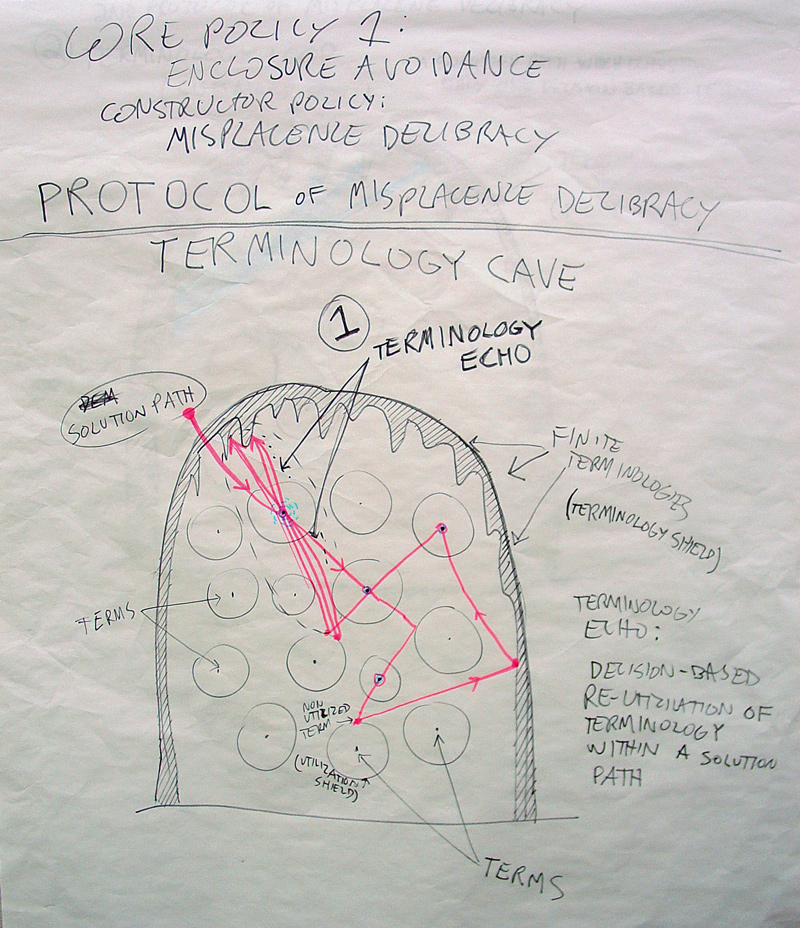 CORE POLICY 1:
ENCLOSURE AVOIDANCE
CONSTRUCTOR POLICY:
MISPLACENZE DELIBRACY
PROTOCOL OF MISPLACENZE DELIBRACY
TERMINOLOGY CAVE
1
TERMINOLOGY
ECHO
SOLUTION PATH
FINITE
TERMINOLOGIES
(TERMINOLOGY SHIELD)
TERMS
TERMINOLOGY
ECHO:
DECISION-BASED
RE-UTIZIATION OF
TERMINOLOGY
WITHIN A SOLUTION
PATH
NON
UTILIZED
TERM
(UTILIZATION
SHIELD)
TERMS